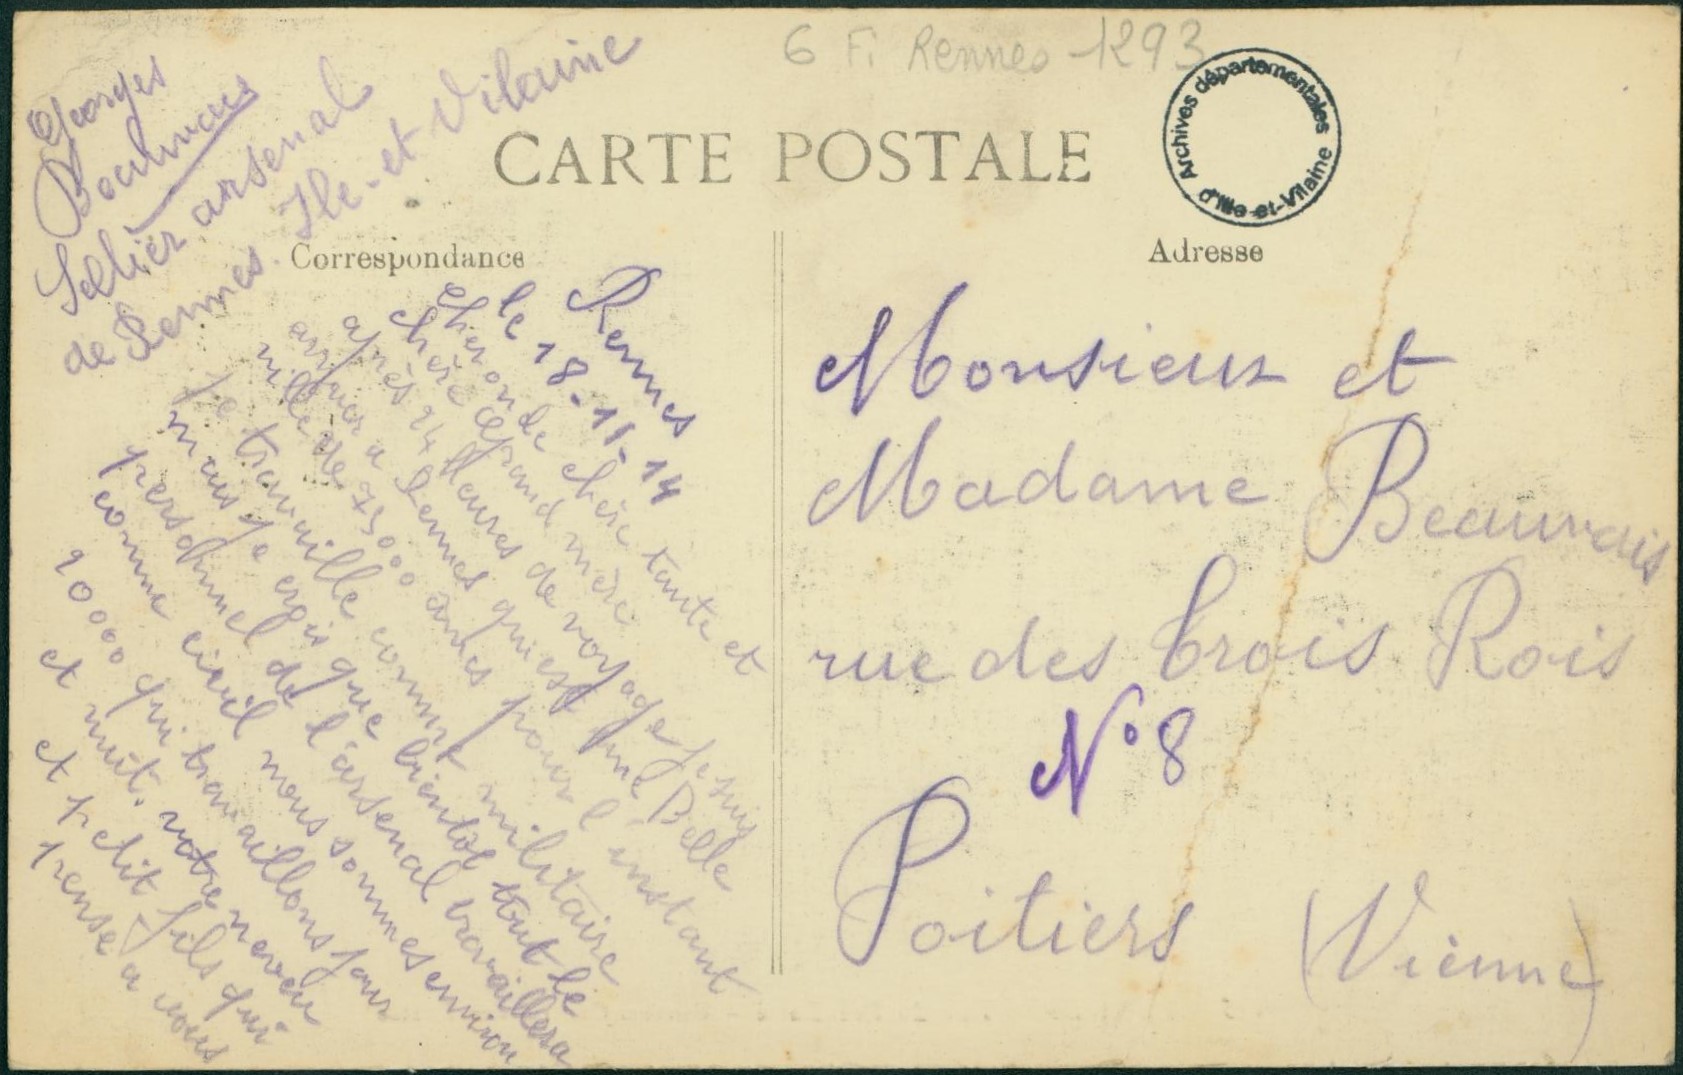 6 Fi Rennes 1293
Archives départementales
d'Ille-et-Vilaine
CARTE POSTALE
Correspondance
Adresse
Georges
Beauvais
Sellier arsenal
de Rennes. Ile-et Vilaine
Rennes
le 18-11-14
Cher oncle chère tante et
chère Grand mère
après 24 Heures de voyage je suis
arriver a Rennes qui est une Belle
ville de 75000 ames pour l'instant
je travaille comme militaire
mais je crois que bientôt tout le
personnel de l'arsenal travaillera
comme civil nous sommes environ
20000 qui travaillons jour
et nuit. votre neveu
et petit fils qui
pense a vous
Monsieur et
Madame Beauvais
rue des Trois Rois
N° 8
Poitiers (Vienne)